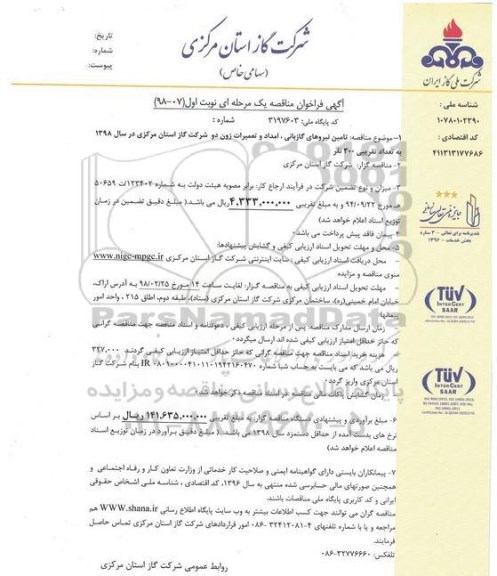 تاریخ:
شماره:
پیوست:
شرکت گاز استان مرکزی
(سهامی خاص)
شرکت ملی گاز ایران
شناسه ملی:
۱۰۷۸۰۱۰۲۳۹۰
کد اقتصادی:
۴۱۱۳۱۳۱۷۷۶۸۶
آگهی فراخوان مناقصه یک مرحله ای نوبت اول(۰۷-۹۸)
کد پایگاه ملی: ۳۱۹۷۶۰۳ شماره :
۱-موضوع مناقصه: تامین نیروهای گازبانی ، امداد و تعمیرات زون دو شرکت گاز استان مرکزی در سال ۱۳۹۸
به تعداد تقریبی ۳۰۰ نفر
۲- مناقصه گزار: شرکت گاز استان مرکزی
۳- میزان و نوع تضمین شرکت در فرآیند ارجاع کار: برابر مصوبه هیئت دولت به شماره ۱۲۳۴۰۲/ت ۵۰۶۵۹
ه مورخ ۹۴/۰۹/۲۲ و به مبلغ تقریبی ۴.۳۳۳.۰۰۰.۰۰۰ ریال می باشد.( مبلغ دقیق تضمین در زمان
توزیع اسناد اعلام خواهد شد)
۴- پیمان فاقد پیش پرداخت می باشد.
۵- محل و مهلت تحویل اسناد ارزیابی کیفی و گشایش پیشنهادها:
محل دریافت اسناد ارزیابی کیفی : سایت اینترنتی شرکت گاز استان مرکزی www.nigc-mpgc.ir
منوی مناقصه و مزایده
مهلت تحویل اسناد ارزیابی کیفی به مناقصه گزار: لغایت ساعت ۱۴ مورخ ۹۸/۰۲/۲۵ به آدرس اراک،
خیابان امام خمینی(ره)، ساختمان مرکزی شرکت گاز استان مرکزی (ستاد)، طبقه دوم، اطاق ۲۱۵ ، واحد امور
پیمانها
زمان ارسال مدارک مناقصه: پس از مرحله ارزیابی کیفی ، دعوتنامه و اسناد مناقصه جهت مناقصه گرانی
که حائز حداقل امتیاز ارزیابی کیفی شده اند ارسال میگردد.
هزینه خرید اسناد مناقصه جهت مناقصه گرانی که حائز حداقل امتیاز ارزیابی کیفی گردند ۳۲۷.۰۰۰
ریال می باشد که می بایست به حساب شبا شماره IR بنام شرکت گاز
استان مرکزی واریز گردد.
زمان گشایش پاکات مالی مناقصه در اسناد مناقصه ذکر خواهد شد.
۶- مبلغ برآوردی و پیشنهادی دستگاه مناقصه گزار به مبلغ تقریبی ۱۴۱.۶۳۵.۰۰۰.۰۰۰ ریال بر اساس
نرخ های بدست آمده از حداقل دستمزد سال ۱۳۹۸ می باشد. ( مبلغ دقیق برآورد در زمان توزیع اسناد
مناقصه اعلام خواهد شد)
۷- پیمانکاران بایستی دارای گواهینامه ایمنی و صلاحیت کار خدماتی از وزارت تعاون کار و رفاه اجتماعی و
همچنین صورتهای مالی حسابرسی شده منتهی به سال ۱۳۹۶، کد اقتصادی ، شناسه ملی اشخاص حقوقی
ایرانی و کد کاربری پایگاه ملی مناقصات باشند.
مناقصه گران می توانند جهت کسب اطلاعات بیشتر به وب سایت پایگاه اطلاع رسانی www.shana.ir هم
مراجعه و یا با شماره تلفنهای ۴-۳۲۴۱۲۰۸۱-۰۸۶ امور قراردادهای شرکت گاز استان مرکزی تماس حاصل
فرمایند.
تلفکس: ۳۲۷۷۶۶۶۰-۰۸۶
روابط عمومی شرکت گاز استان مرکزی
TÜV
INTERCERT
SAAR
TÜV
INTERCERT
SAAR
TÜV
INTERCERT
SAAR
ParsNamadData
پایگاه اطلاع رسانی مناقصه و مزایده